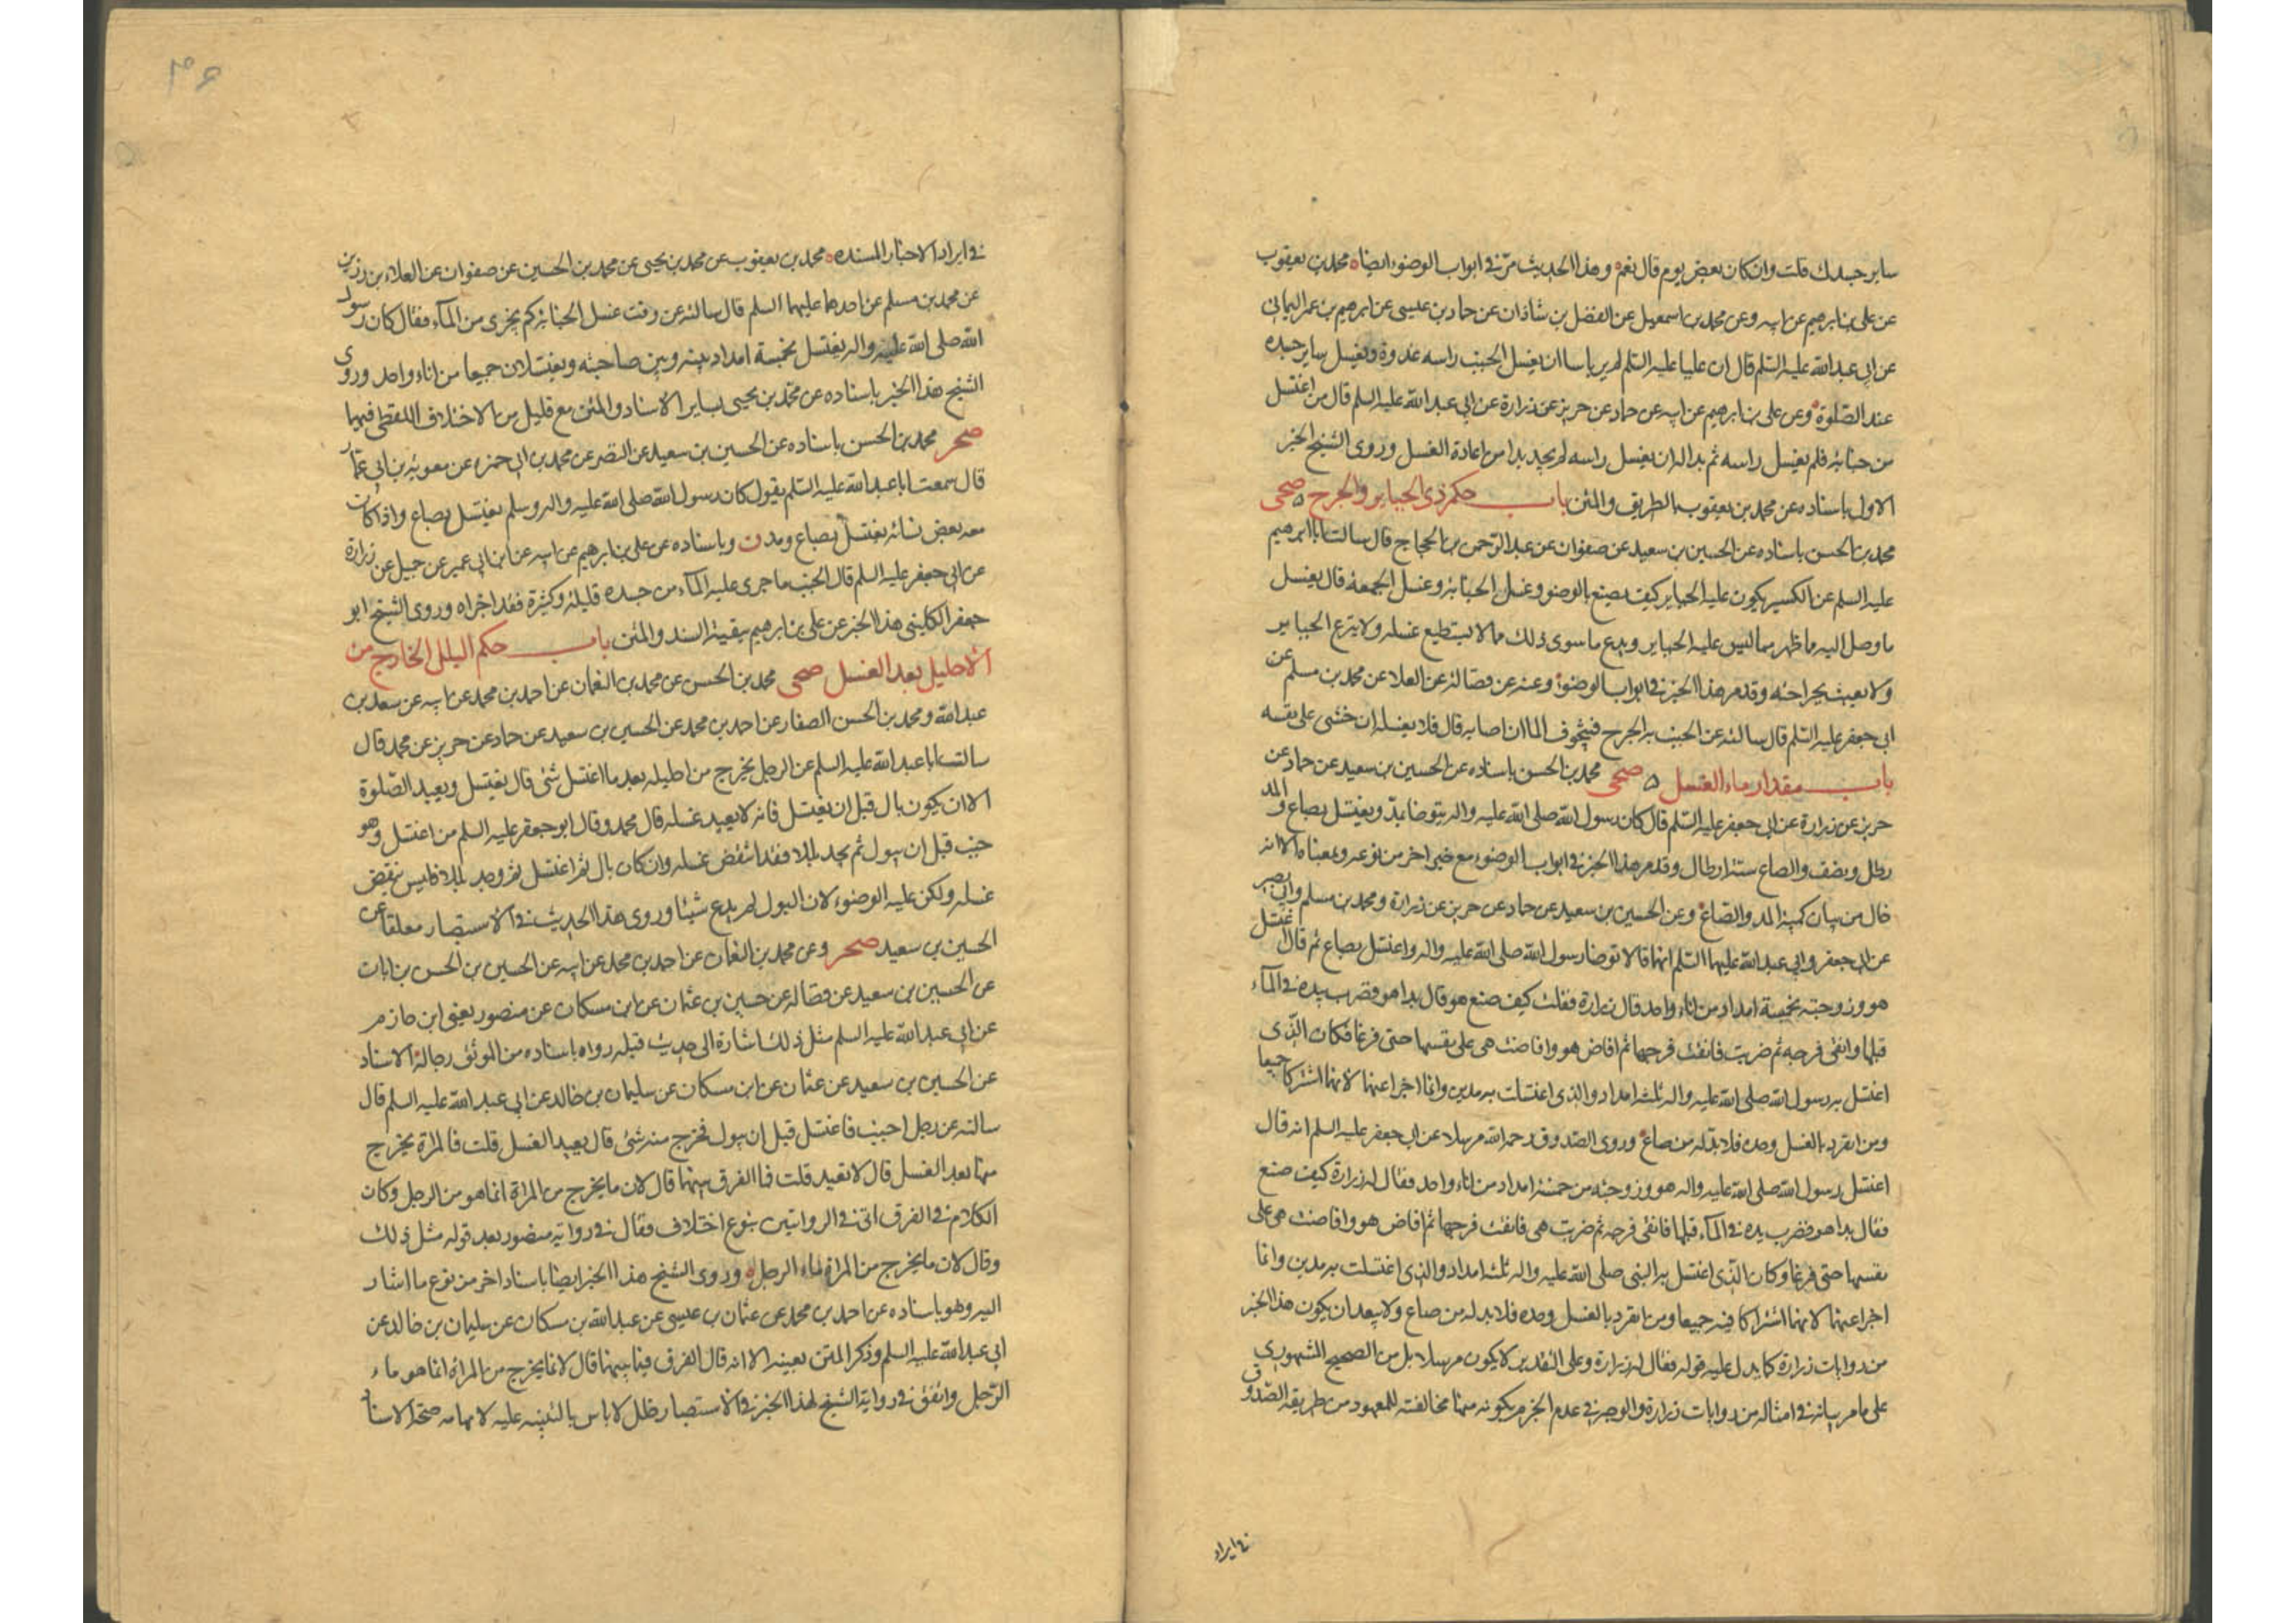 ساير جسدك قلت وان كان بعض يوم قال نعم وهذا الحديث مرّ في ابواب الوضوء ايضا محمد بن يعقوب
عن علي بن ابرهيم عن ابيه وعن محمد بن اسمعيل عن الفضل بن شاذان عن حماد بن عيسى عن ابرهيم بن عمر اليماني
عن ابي عبد الله عليه السّلم قال ان عليا عليه السّلم لم ير باسا ان يغسل الجنب راسه غدوة ويغسل ساير جسده
عند الصّلوة وعن علي بن ابرهيم عن ابيه عن حماد عن حريز عن زرارة عن ابي عبد الله عليه السلم قال من اغتسل
من جنابة فلم يغسل راسه ثم بدا له ان يغسل راسه لم يجد بدا من اعادة الغسل وروى الشيخ الخبر
الاول باسناده عن محمد بن يعقوب بالطريق والمتن باب حكم ذي الجباير والجرح صحى
محمد بن الحسن باسناده عن الحسين بن سعيد عن صفوان عن عبد الرّحمن بن الحجاج قال سالت ابا ابرهيم
عليه السلم عن الكسير يكون عليه الجباير كيف يصنع بالوضوء وغسل الجنابة وغسل الجمعة قال يغسل
ما وصل اليه ما ظهر مما ليس عليه الجباير ويدع ما سوى ذلك مما لا يستطيع غسله ولا ينزع الجباير
ولا يعبث بجراحته وقد مر هذا الخبر في ابواب الوضوء وعنه عن فضالة عن العلا عن محمد بن مسلم عن
ابي جعفر عليه السّلم قال سالته عن الجنب به الجرح فيتخوف الما ان اصابه قال فلا يغسله ان خشى على نفسه
باب مقدار ماء الغسل صحى محمد بن الحسن باسناده عن الحسين بن سعيد عن حماد عن
حريز عن زرارة عن ابي جعفر عليه السّلم قال كان رسول الله صلى الله عليه واله يتوضا بمدّ ويغتسل بصاع والمد
رطل ونصف والصاع ستة ارطال وقد مر هذا الخبر في ابواب الوضوء مع خبر اخر من نوعه وبمعناه الا انه
خال من بيان كمية المد والصّاع وعن الحسين بن سعيد عن حماد عن حريز عن زرارة ومحمد بن مسلم وابي بصير
عن ابي جعفر وابي عبد الله عليهما السّلم انهما قالا توضا رسول الله صلى الله عليه واله واغتسل بصاع ثم قال اغتسل
هو وزوجته بخمسة امداد من اناء واحد قال زرارة فقلت كيف صنع هو قال بدا هو فضرب بيده في المآء
قبلها وانقى فرجه ثم ضربت فانقت فرجها ثم افاض هو وافاضت هي على نفسها حتى فرغا فكان الّذي
اغتسل به رسول الله صلى الله عليه واله ثلثة امداد والذي اغتسلت به مدين وانما اجزا عنهما لانهما اشتركا جميعا
ومن انفرد بالغسل وحده فلا بدّ له من صاع وروى الصّدوق رحمه الله مرسلا عن ابي جعفر عليه السلم انه قال
اغتسل رسول الله صلى الله عليه واله هو وزوجته من خمسة امداد من اناء واحد فقال له زرارة كيف صنع
فقال بدا هو فضرب يده في المآء قبلها فانقى فرجه ثم ضربت هي فانقت فرجها ثم افاض هو وافاضت هي على
نفسها حتى فرغا وكان الّذي اغتسل به النبي صلى الله عليه واله ثلثة امداد والذي اغتسلت به مدين وانما
اجزا عنهما لانهما اشتركا فيه جميعا ومن انفرد بالغسل وحده فلا بد له من صاع ولا يبعد ان يكون هذا الخبر
من روايات زرارة كما يدل عليه قوله فقال له زرارة وعلى التقدير لا يكون مرسلا بل من الصحيح المشهوري
على ما مر بيانه في امثاله من روايات زرارة والوجه في عدم الجزم بكونه منها مخالفته للمعهود من طريقة الصّدوق
في ايراد
۴۶
في ايراد الاخبار المسنده محمد بن يعقوب عن محمد بن يحيى عن محمد بن الحسين عن صفوان عن العلاء بن رزين
عن محمد بن مسلم عن احدهما عليهما السلم قال سالته عن وقت غسل الجنابة كم يجزى من المآء فقال كان رسول
الله صلى الله عليه واله يغتسل بخمسة امداد بينه وبين صاحبته ويغتسلان جميعا من اناء واحد وروى
الشيخ هذا الخبر باسناده عن محمّد بن يحيى بساير الاسناد والمتن مع قليل من الاختلاف اللفظي فيهما
صحر محمد بن الحسن باسناده عن الحسين بن سعيد عن النضر عن محمد بن ابي حمزه عن معوية بن ابي عمّار
قال سمعت ابا عبد الله عليه السّلم يقول كان رسول الله صلى الله عليه واله وسلم يغتسل بصاع واذا كان
معه بعض نسائه يغتسل بصاع ومد ن وباسناده عن علي بن ابرهيم عن ابيه عن ابن ابي عمير عن جميل عن زرارة
عن ابي جعفر عليه السلم قال الجنب ما جرى عليه المآء من جسده قليله وكثيره فقد اجزاه وروى الشيخ ابو
جعفر الكليني هذا الخبر عن علي بن ابرهيم ببقية السند والمتن باب حكم البلل الخارج من
الاحليل بعد الغسل صحى محمد بن الحسن عن محمد بن النعمان عن احمد بن محمد عن ابيه عن سعد بن
عبد الله ومحمد بن الحسن الصفار عن احمد بن محمد عن الحسين بن سعيد عن حماد عن حريز عن محمد قال
سالت ابا عبد الله عليه السلم عن الرجل يخرج من احليله بعد ما اغتسل شئ قال يغتسل ويعيد الصّلوة
الا ان يكون بال قبل ان يغتسل فانه لا يعيد غسله قال محمد وقال ابو جعفر عليه السلم من اغتسل وهو
جنب قبل ان يبول ثم يجد بللا فقد انتقض غسله وان كان بال ثم اغتسل ثم وجد بللا فليس ينقض
غسله ولكن عليه الوضوء لان البول لم يدع شيئا وروى هذا الحديث في الاستبصار معلقا عن
الحسين بن سعيد صحر وعن محمد بن النعمان عن احمد بن محمد عن ابيه عن الحسين بن الحسن بن ابان
عن الحسين بن سعيد عن فضالة عن حسين بن عثمان عن ابن مسكان عن منصور يعني ابن حازم
عن ابي عبد الله عليه السلم مثل ذلك اشارة الى حديث قبله رواه باسناده من الموثق رجاله الاسناد
عن الحسين بن سعيد عن عثمان عن ابن مسكان عن سليمان بن خالد عن ابي عبد الله عليه السلم قال
سالته عن رجل اجنب فاغتسل قبل ان يبول فخرج منه شئ قال يعيد الغسل قلت فالمراة يخرج
منها بعد الغسل قال لا تعيد قلت فما الفرق بينهما قال لان ما يخرج من المراة انما هو من الرجل وكان
الكلام في الفرق اتى في الروايتين بنوع اختلاف فقال في رواية منصور بعد قوله مثل ذلك
وقال لان ما يخرج من المراة ماء الرجل وروى الشيخ هذا الخبر ايضا باسناد اخر من نوع ما اشار
اليه وهو باسناده عن احمد بن محمد عن عثمان بن عيسى عن عبد الله بن مسكان عن سليمان بن خالد عن
ابي عبد الله عليه السلم وذكر المتن بعينه الا انه قال الفرق فيما بينهما قال لانما يخرج من المراة انما هو ماء
الرّجل واتفق في رواية الشيخ لهذا الخبر في الاستبصار خلل لا باس بالتنبيه عليه لايهامه صحّة الاسناد